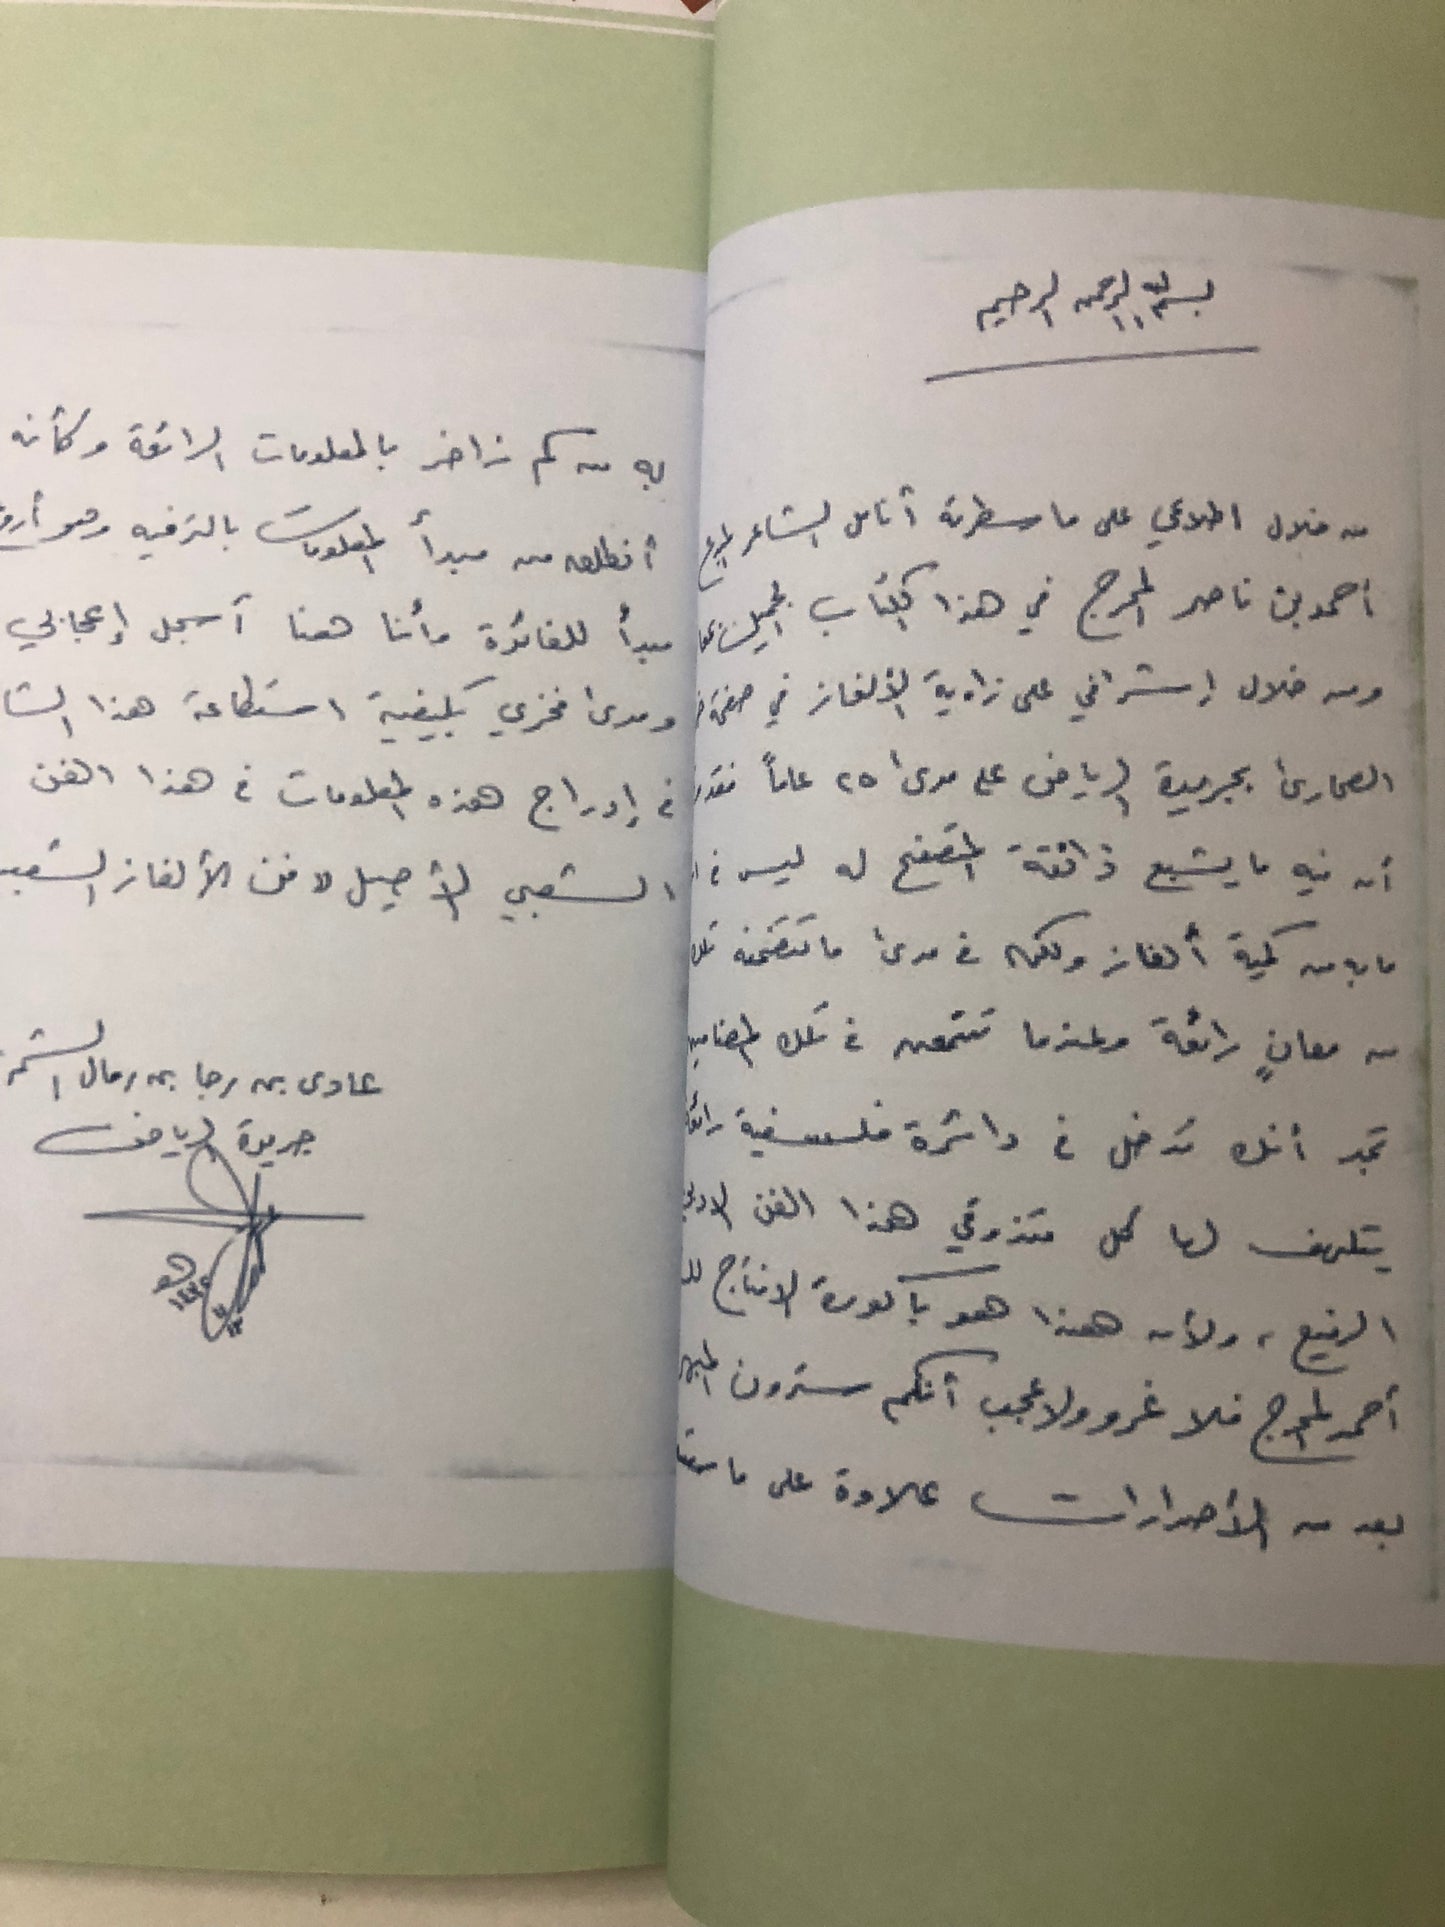 بسم الله الرحمن الرحيم
من خلال اطلاعي على ما سطرته أنامل الشاعر
أحمد بن ناصر المحرج في هذا الكتاب الجميل
ومن خلال إشرافي على زاوية الألغاز في
الصحارى بجريدة الرياض على مدى ٢٥ عاماً
أن فيه ما يشبع ذائقة المتصفح له ليس في
ما به من كمية ألغاز ولكن في مدى ما تتضمنه تلك
من معانٍ رائعة وعندما تتمعن في تلك المضامين
تجد أنك تدخل في دائرة فلسفية
يتلهف لها كل متذوقي هذا الفن
الرفيع ، ولأن هذا هو باكورة الانتاج
أحمد المحرج فلا غرو ولا عجب أنكم سترون
بعد من الأصدارات علاوة على ما
به من كم زاخر بالمعلومات الرائعة وكأنه
أنطلق من مبدأ المعلومات بالترفيه وهو
مبدأ للفائدة وأنا هنا أسجل إعجابي
ومدى فخري بكيفية استطاعة هذا
في إدراج هذه المعلومات في هذا الفن
الشعبي الأصيل « فن الألغاز
عادي بن رجا بن رمال
جريدة الرياض